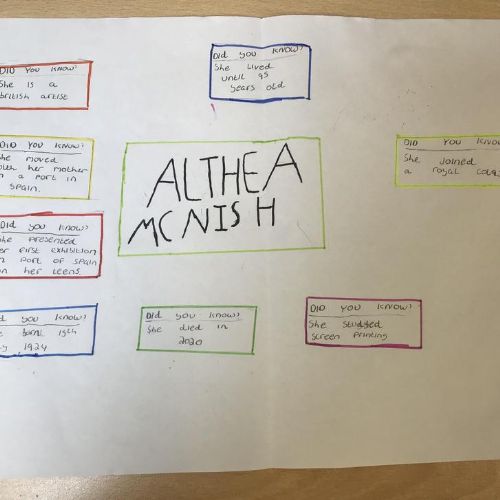 DID YOU KNOW?
She is a
british artist
Did you know?
She Lived
until 95
years old
DID YOU KNOW?
She moved
with her mother
in a Port in
Spain.
ALTHEA
MCNISH
DID YOU KNOW
She Joined
a royal
DID you know?
She Presented
her first exhibition
in Port of Spain
in her teens.
you know?
born 15th
1924
Did you know?
She died in
2020
DID YOU KNOW?
She studyed
screen printing